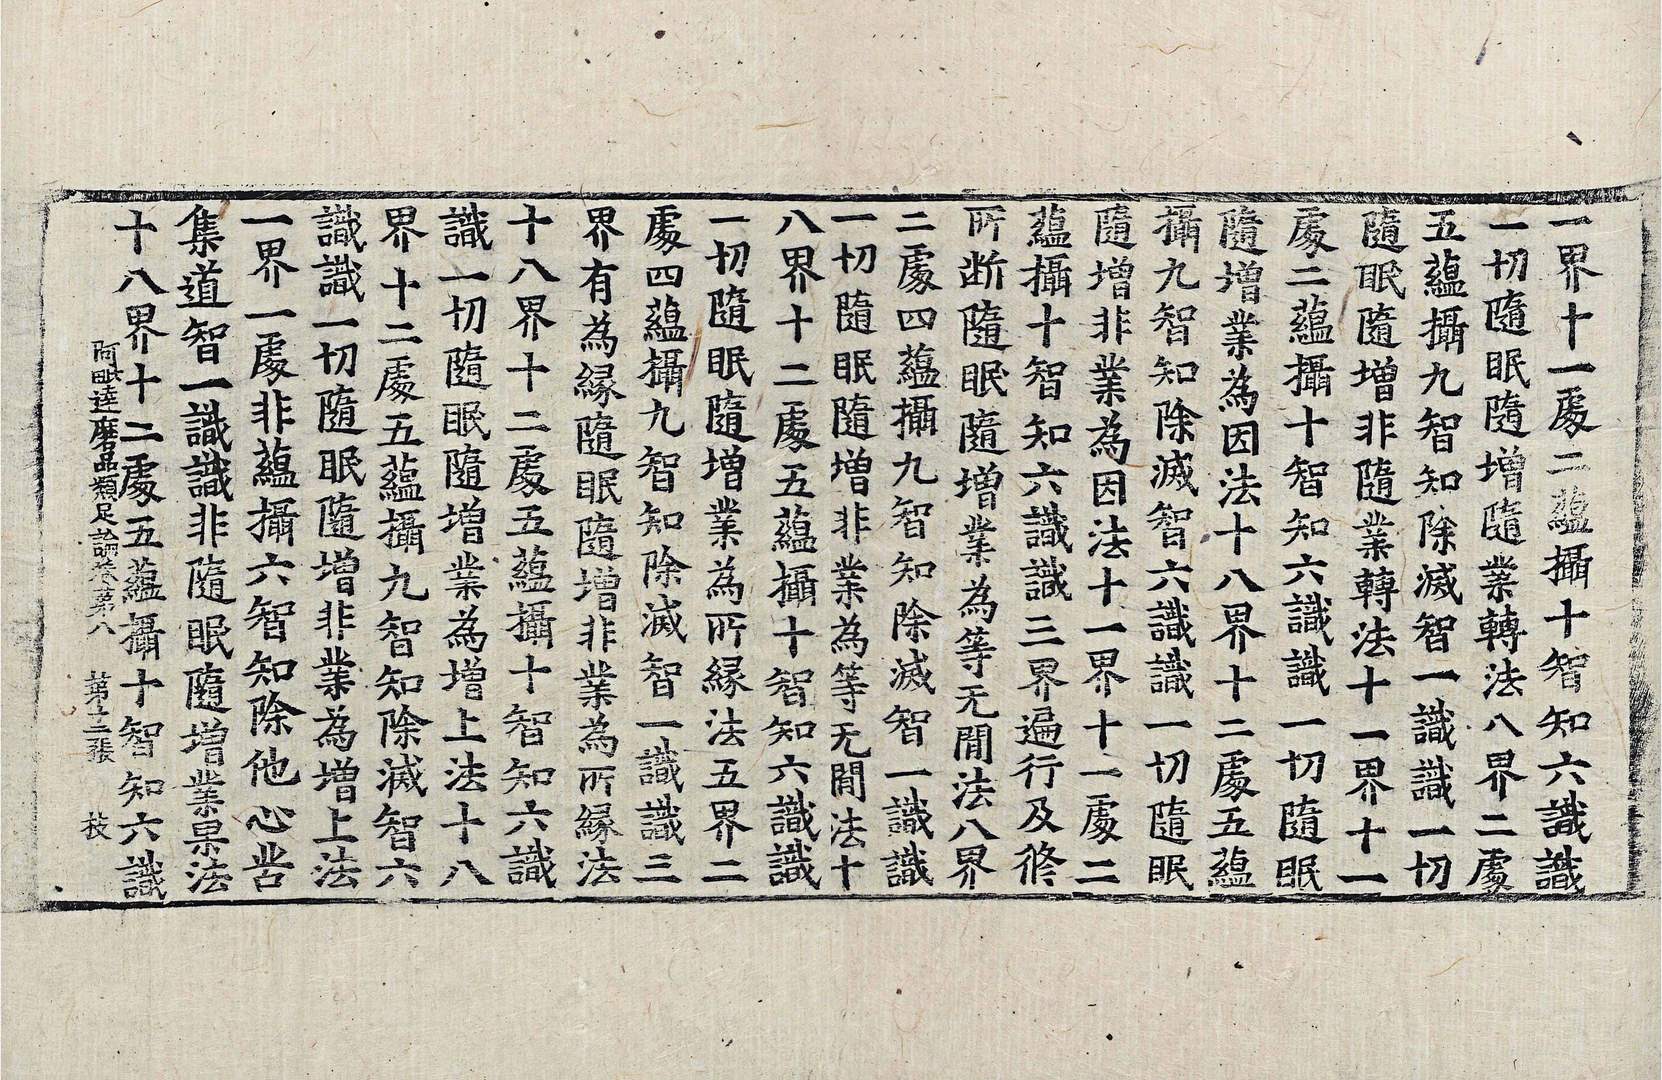 一界十一處二蘊攝十智知六識識
一切隨眠隨增隨業轉法八界二處
五蘊攝九智知除滅智一識識一切
隨眠隨增非隨業轉法十一界十一
處二蘊攝十智知六識識一切隨眠
隨增業為因法十八界十二處五蘊
攝九智知除滅智六識識一切隨眠
隨增非業為因法十一界十一處二
蘊攝十智知六識識三界遍行及修
所断隨眠隨增業為等无閒法八界
二處四蘊攝九智知除滅智一識識
一切隨眠隨增非業為等无閒法十
八界十二處五蘊攝十智知六識識
一切隨眠隨增業為所緣法五界二
處四蘊攝九智知除滅智一識識三
界有為緣隨眠隨增非業為所緣法
十八界十二處五蘊攝十智知六識
識一切隨眠隨增業為增上法十八
界十二處五蘊攝九智知除滅智六
識識一切隨眠隨增非業為增上法
一界一處非蘊攝六智知除他心苦
集道智一識識非隨眠隨增業果法
十八界十二處五蘊攝十智知六識
阿毗達磨品類足論卷第八 第十二張 技